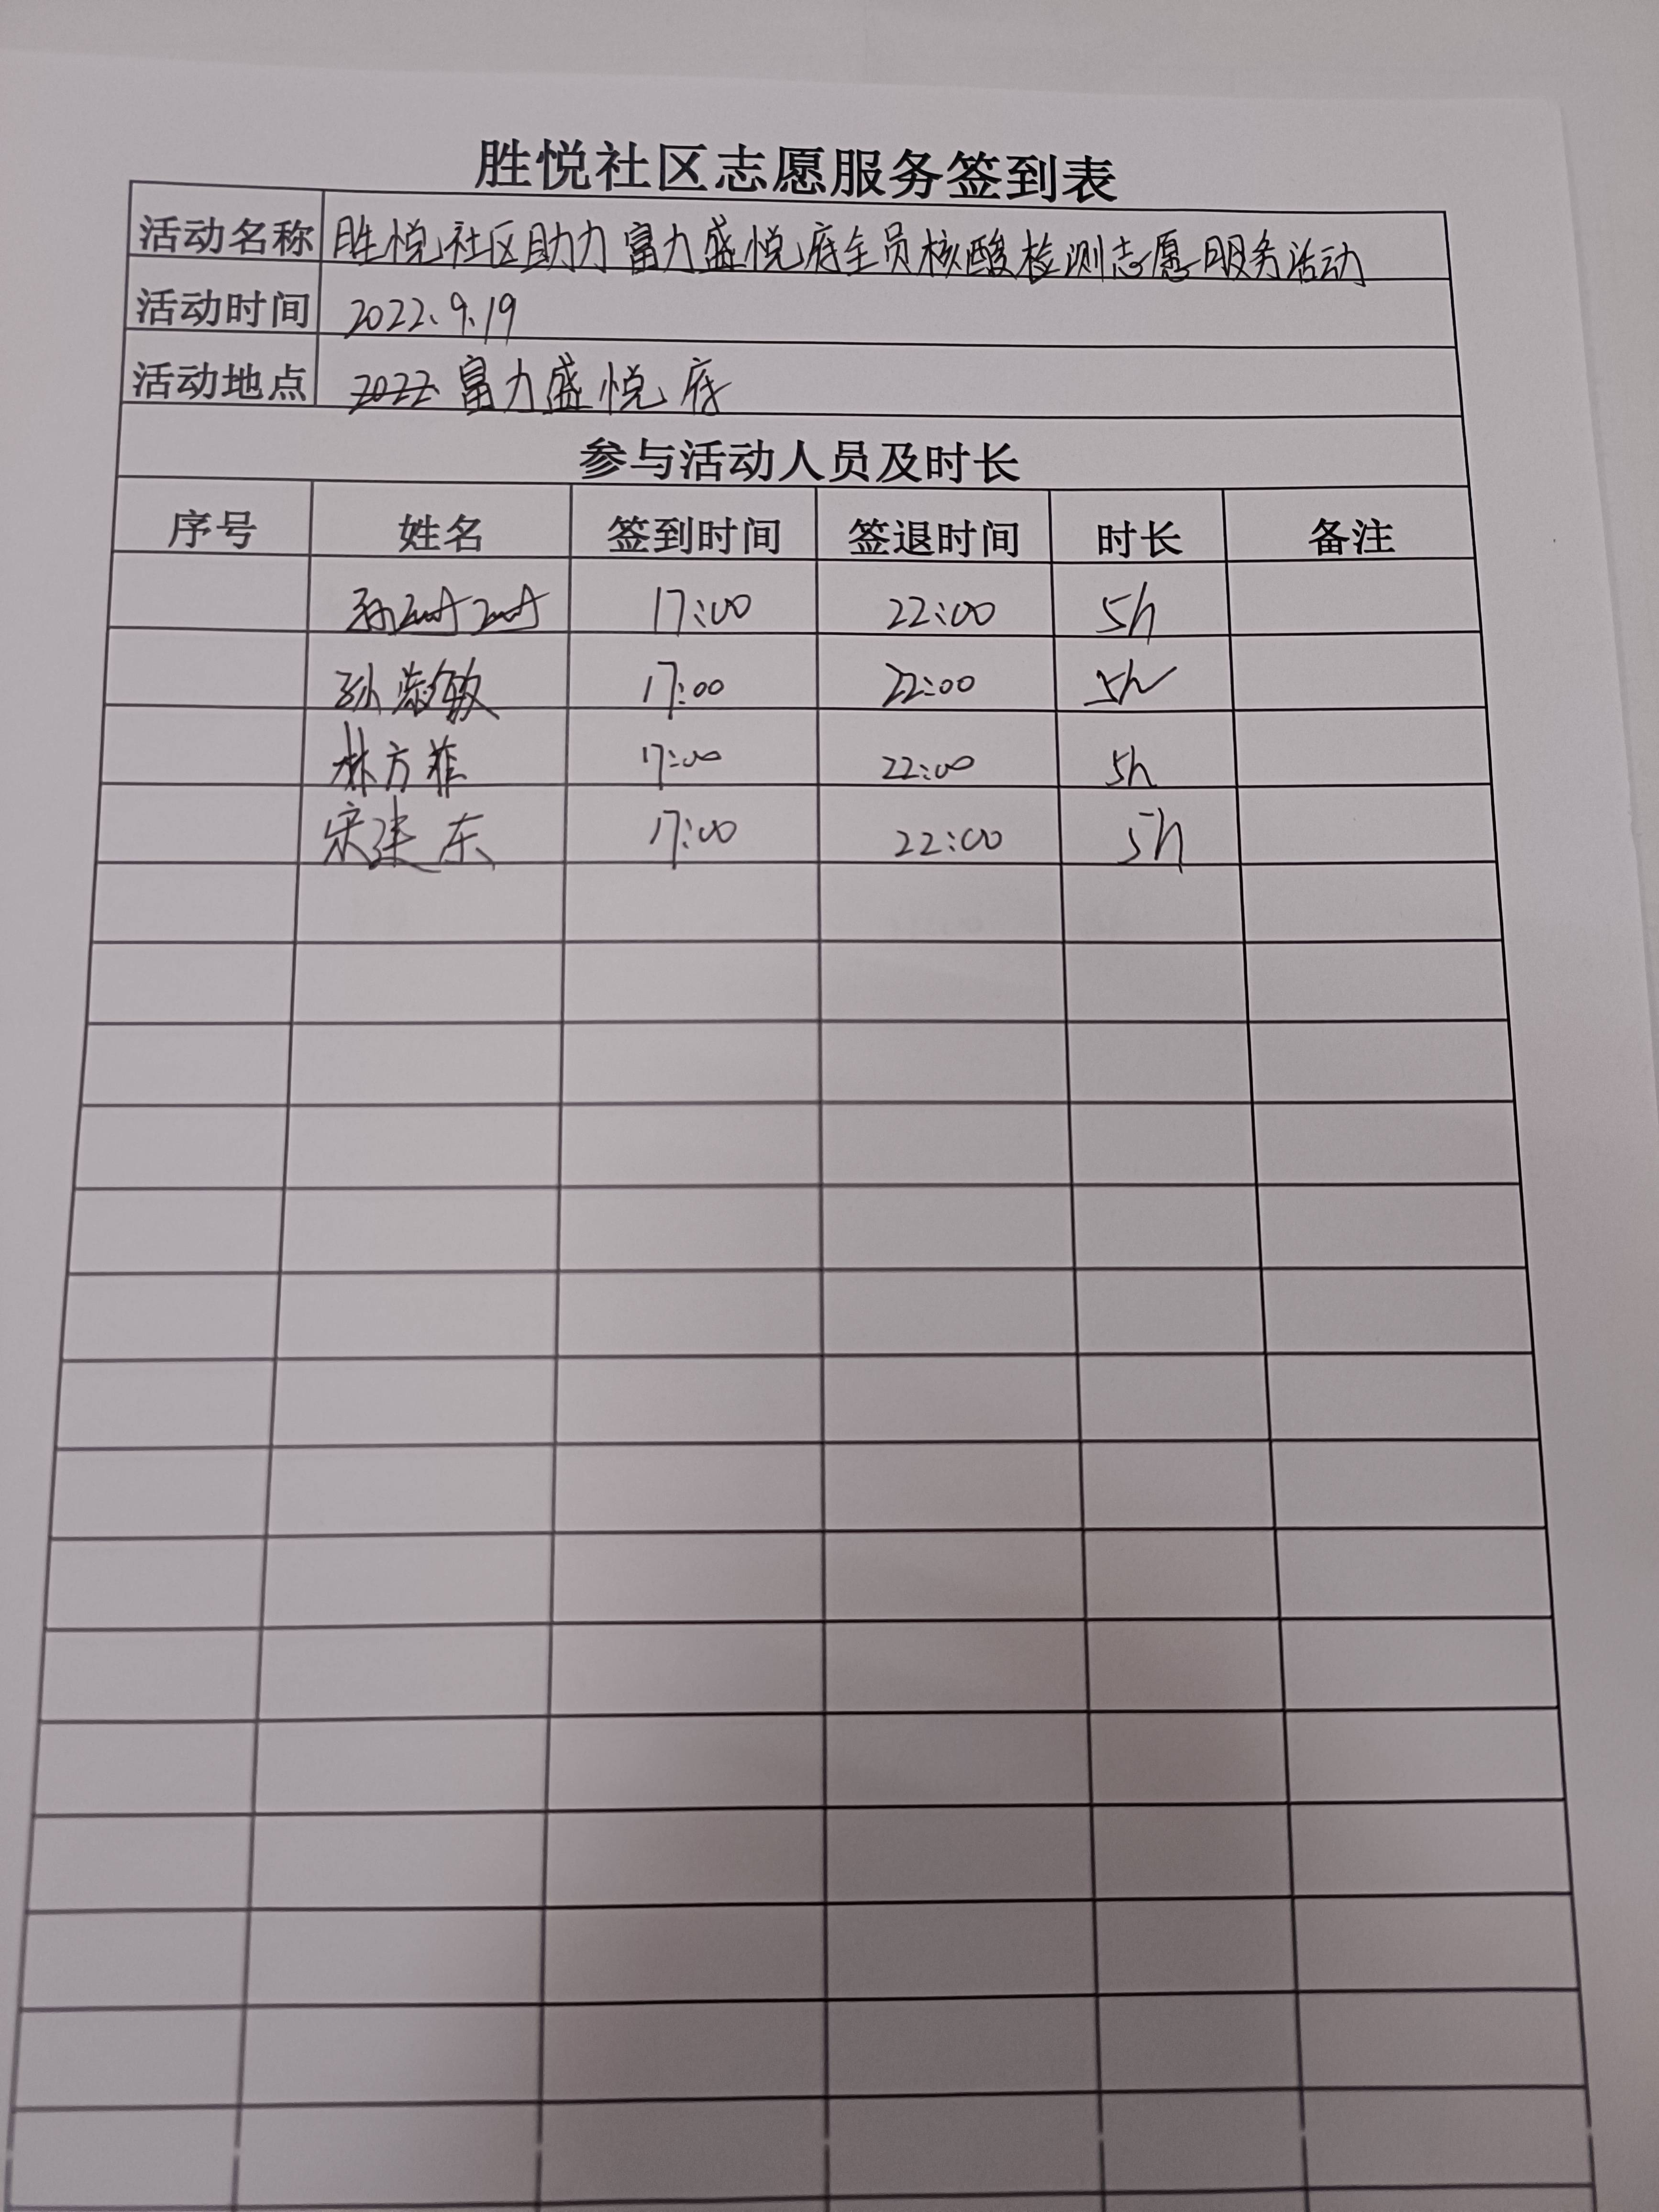 胜悦社区志愿服务签到表
活动名称 胜悦社区助力富力盛悦府全员核酸检测志愿服务活动
活动时间 2022.9.19
活动地点 2022 富力盛悦府
参与活动人员及时长
序号 姓名 签到时间 签退时间 时长 备注
孙 17:00 22:00 5h
孙 敏 17:00 22:00 5h
林方菲 17:00 22:00 5h
宋建东 17:00 22:00 5h